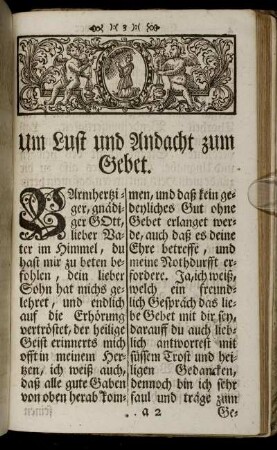 3
Um Lust und Andacht zum
Gebet.
BArmhertzi-
ger, gnädi-
ger GOtt,
lieber Va-
ter im Himmel, du
hast mir zu beten be-
fohlen, dein lieber
Sohn hat michs ge-
lehret, und endlich
auf die Erhörung
vertröstet, der heilige
Geist erinnerts mich
offt in meinem Her-
tzen, ich weiß auch,
daß alle gute Gaben
von oben herab kom-
men, und daß kein ge-
deyliches Gut ohne
Gebet erlanget wer-
de, auch daß es deine
Ehre betreffe, und
meine Nothdurfft er-
fordere. Ja, ich weiß,
welch ein freund-
lich Gespräch das lie-
be Gebet mit dir sey,
darauff du auch lieb-
lich antwortest mit
süssem Trost und hei-
ligen Gedancken,
dennoch bin ich sehr
faul und träge zum
a 2
Ge-